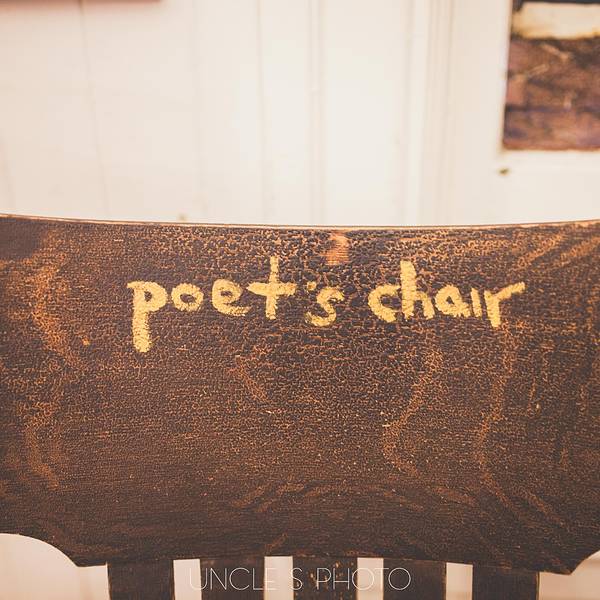 poet's chair
UNCLE'S PHOTO